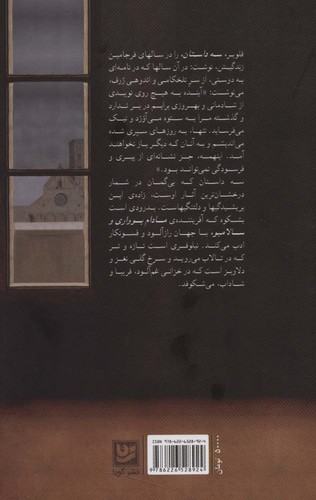 فلوبر، سه داستان، را در سالهای فرجامین
زندگیش، نوشت: در آن سالها که در نامه‌ای
به دوستی، از سرِ تلخکامی و اندوهی ژرف،
می‌نوشت: «آینده به هیچ روی نویدی
از شادمانی و بهروزی برایم در بر ندارد
و گذشته مرا به ستوه می‌آوَرَد و نیک
می‌فرساید. تنها، به روزهای سپری شده
می‌اندیشم و به آنان که دیگر باز نخواهند
آمد. اینهمه، جز نشانه‌ای از پیری و
فرسودگی نمی‌تواند بود.»
سه داستان که بی‌گمان در شمار
درخشان‌ترین آثار اوست، زاده‌ی این
پریشیدگیها و دلتنگیهاست. بدرودی است
باشکوه که آفریننده‌ی مادام بوواری و
سالامبو، با جهان رازآلود و فسونکار
ادب می‌کند. نیلوفری است تازه و تر
که در تالاب می‌روید و سرخ گلی نغز و
دلاویز است که در خزانی غم‌آلود، فریبا و
شاداب، می‌شکوفد.
ISBN 978-622-6528-92-4
9786226528924
۵۰۰۰۰ تومان
نشر گویا